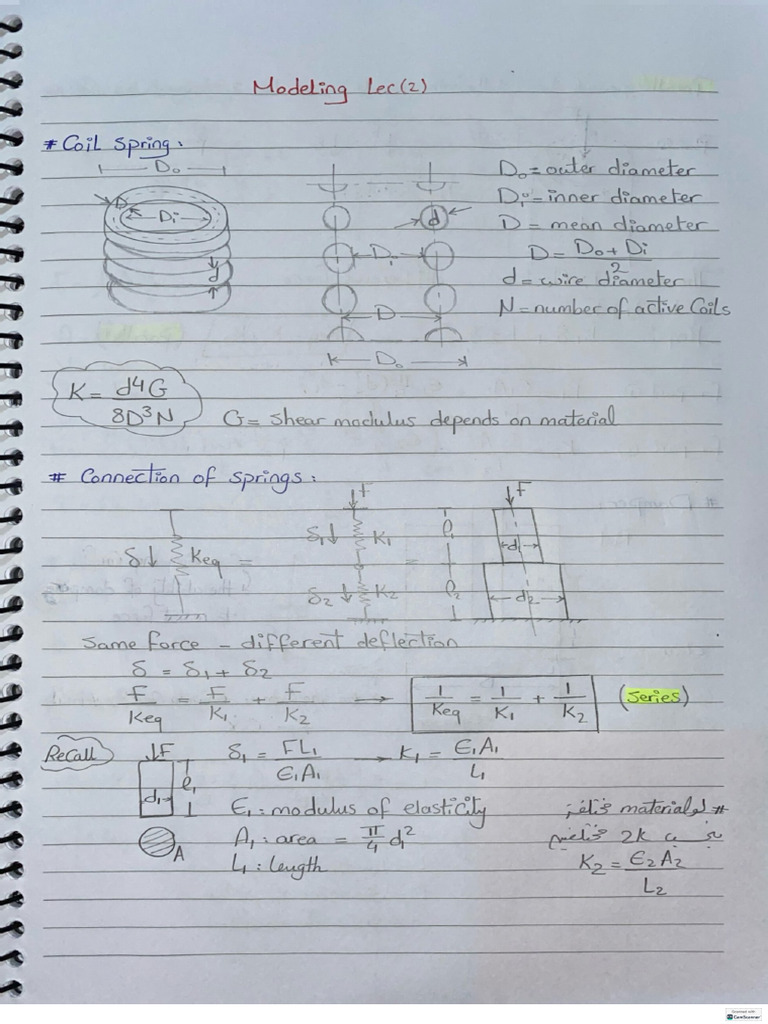 Modeling Lec(2)
# Coil Spring:
Do
D
Di
d
d
Di
D
Do
Do = outer diameter
Di = inner diameter
D = mean diameter
D = Do + Di / 2
d = wire diameter
N = number of active Coils
K = d4G / 8D³N
G = shear modulus depends on material
# Connection of springs:
δ↓ Keq =
F
δ1↓ K1
δ2↓ K2 =
F
l1
d1
l2
d2
Same force - different deflection
δ = δ1 + δ2
F/Keq = F/K1 + F/K2 → 1/Keq = 1/K1 + 1/K2 (Series)
ReCall
↓F
l1
d1
A
δ1 = FL1/E1A1 → K1 = E1A1/L1
E1: modulus of elasticity
A1: area = π/4 d1²
L1: length
# لو material
2K
K2 = E2A2/L2
Scanned with
CamScanner